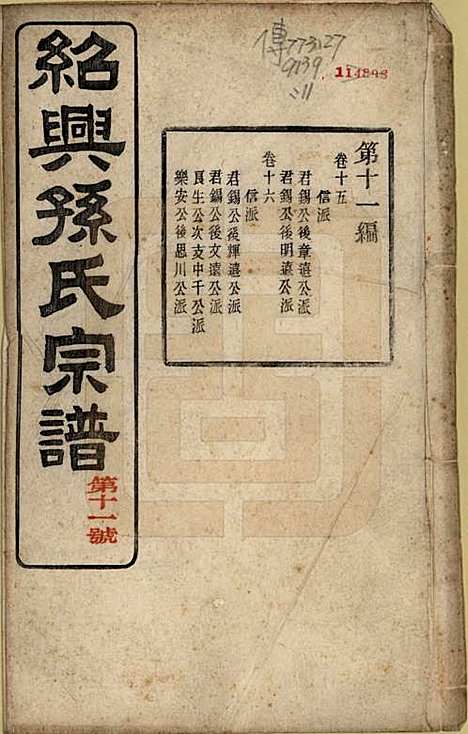 傳773127
9139
:11
114898
第十一編
卷十五
信派
君錫公後章遠公派
君錫公後明遠公派
卷十六
信派
君錫公後輝遠公派
君錫公後文遠公派
艮生公次支中千公派
樂安公後思川公派
紹興孫氏宗譜
第十一號